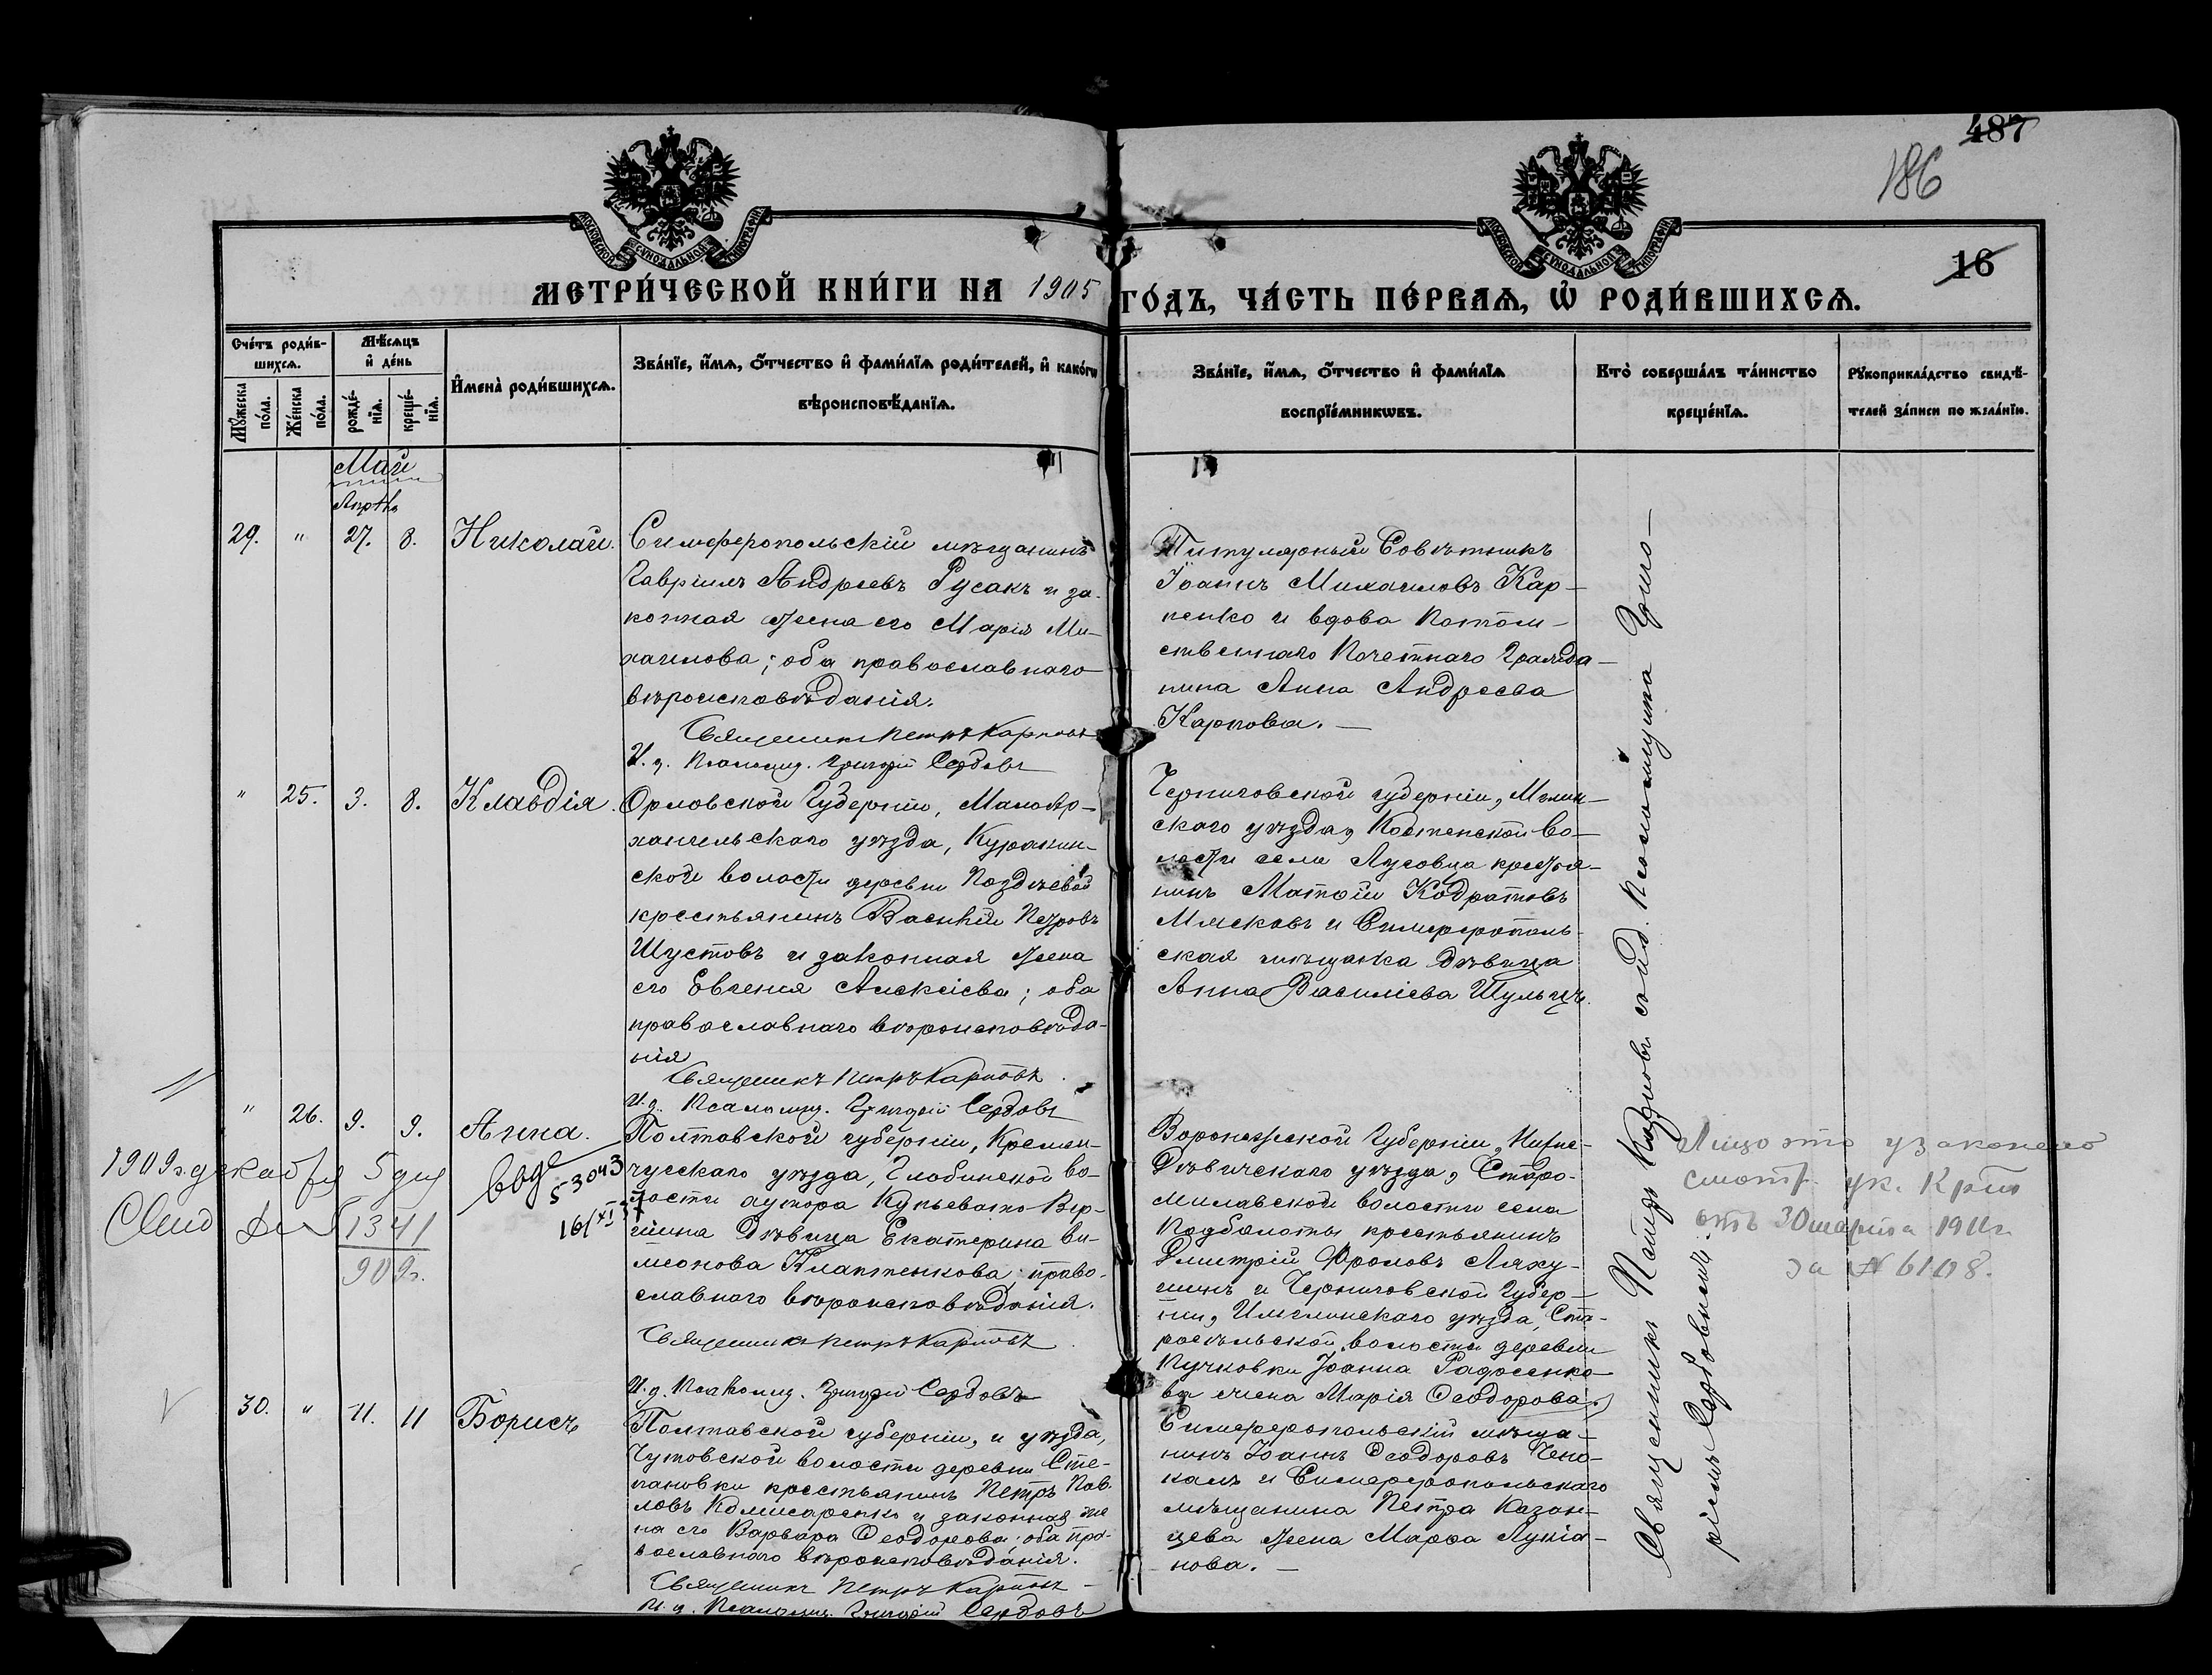 487
186
16
МОСКОВСКОЙ СѴНОДАЛЬНОЙ ТИПОГРАФІИ
МОСКОВСКОЙ СѴНОДАЛЬНОЙ ТИПОГРАФІИ
МЕТРИ́ЧЕСКОЙ КНИ́ГИ НА 1905 ГО́ДЪ, ЧА́СТЬ ПЕ́РВАѦ, Ѽ РОДИ́ВШИХСѦ.
Сче́тъ роди́в-
шихсѧ.
Мꙋ́жеска по́ла.
Же́нска по́ла.
Мѣ́сѧцъ
и҆ де́нь
рожде́-нїѧ.
креще́-нїѧ.
И҆мена̀ роди́вшихсѧ.
Зва́нїе, и҆́мѧ, ѻ҆́тчество и҆ фами́лїѧ роди́телей, и҆ како́гѡ
вѣроисповѣ́данїѧ.
Зва́нїе, и҆́мѧ, ѻ҆́тчество и҆ фами́лїѧ
воспрїе́мникѡвъ.
Кто̀ соверша́лъ та́инство
креще́нїѧ.
Рꙋкоприкла́дство свидѣ́-
телей за́писи по жела́нїю.
Май
Апрѣль
29. " 27. 8. Николай.
Симферопольскій мѣщанинъ
Гавріилъ Андреевъ Русакъ и за-
конная жена его Марія Ми-
хаилова; оба православнаго
вѣроисповѣданія.
Священникъ Петръ Карповъ
И. д. Псаломщ. Григорій Сердовъ
Титулярный Совѣтникъ
Іоаннъ Михаиловъ Кар-
пенко и вдова Потом-
ственнаго Почетнаго Гражда-
нина Анна Андреева
Карпова. —
" 25. 3. 8. Клавдія.
Орловской Губерніи, Малоар-
хангельскаго уѣзда, Куракин-
ской волости деревни Поздѣевой
крестьянинъ Василій Петровъ
Шустовъ и законная жена
его Евгенія Алексіева; оба
православнаго вѣроисповѣда-
нія
Священникъ Петръ Карповъ
И. д. Псаломщ. Григорій Сердовъ
Черниговской губерніи, Мглин-
скаго уѣзда, Костенской во-
лости села Лусовца крестья-
нинъ Матѳій Кодратовъ
Мясковъ и Симферополь-
ская мѣщанка дѣвица
Анна Василіева Шульгъ.
" 26. 9. 9. Анна.
1909 г. декабря 5 дня
1341
909 г.
53043
16/XI 37
Полтавской губерніи, Кремен-
чугскаго уѣзда, Глобинской во-
лости хутора Кутьевато-Вер-
гиина дѣвица Екатерина Ѳи-
леонова Клаптенкова; право-
славнаго вѣроисповѣданія.
Священникъ Петръ Карповъ
И. д. Псаломщ. Григорій Сердовъ
Воронежской Губерніи, Нижне-
Дѣвичскаго уѣзда, Старо-
милавской волости села
Подболоты крестьянинъ
Дмитрій Фроловъ Ляху-
шинъ и Черниговской Губер-
ніи, Имглинскаго уѣзда, Ста-
росѣльской волости деревни
Пучковки Іоанна Радосенко-
ва жена Марія Ѳеодорова.
Лицо это узаконено
смотр. ук. Крым
отъ 30 марта 1911 г.
за № 6108.
30. " 11. 11 Борисъ
Полтавской губерніи, и уѣзда,
Чутовской волости деревни Сте-
пановки крестьянинъ Петръ Пав-
ловъ Комисаренко и законная же-
на его Варвара Ѳеодорова; оба пра-
вославнаго вѣроисповѣданія.
Священникъ Петръ Карповъ
И. д. Псаломщ. Григорій Сердовъ
Симферопольскій мѣща-
нинъ Іоаннъ Ѳеодоровъ Чено-
калъ и Симферопольскаго
мѣщанина Петра Казан-
цева жена Марѳа Лукіа-
нова. —
Священникъ Петръ Карповъ съ и. д. Псаломщика Григо-
ріемъ Сердовымъ.